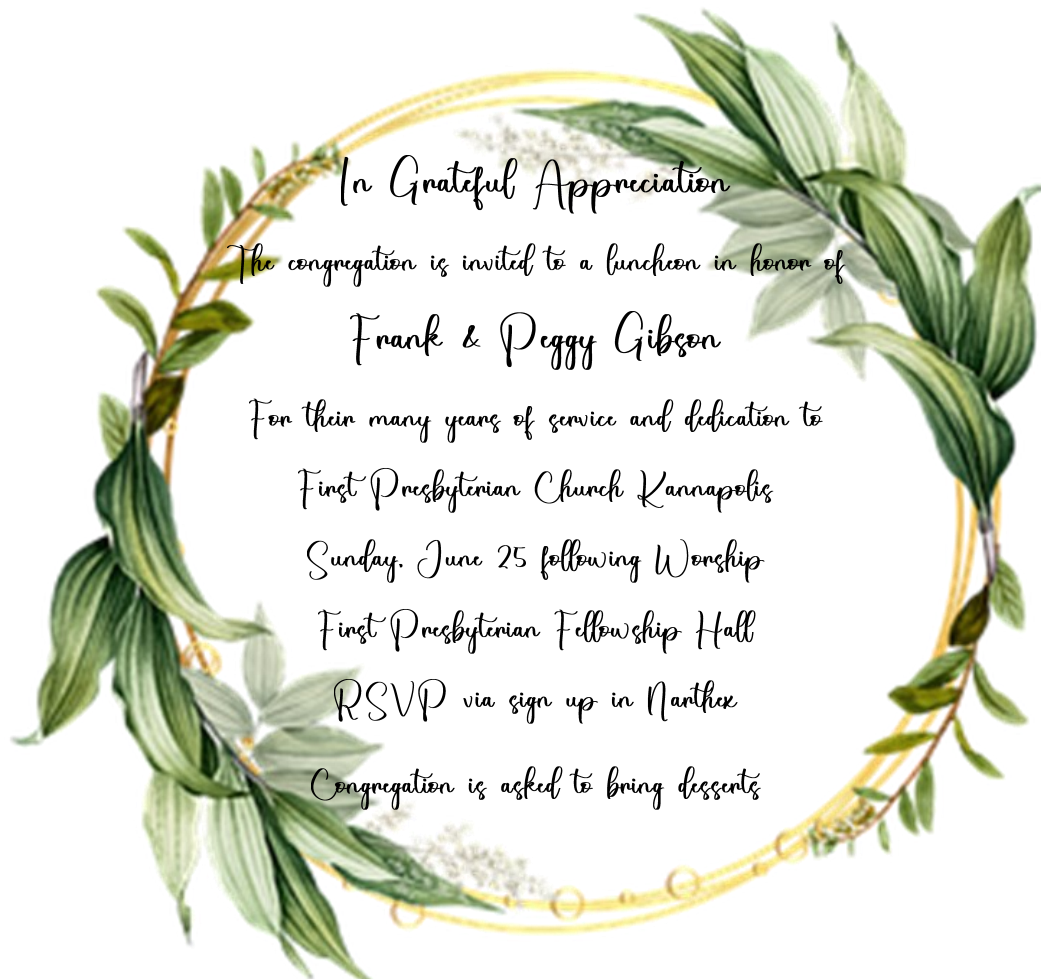 In Grateful Appreciation
The congregation is invited to a luncheon in honor of
Frank & Peggy Gibson
For their many years of service and dedication to
First Presbyterian Church Kannapolis
Sunday, June 25 following Worship
First Presbyterian Fellowship Hall
RSVP via sign up in Narthex
Congregation is asked to bring desserts